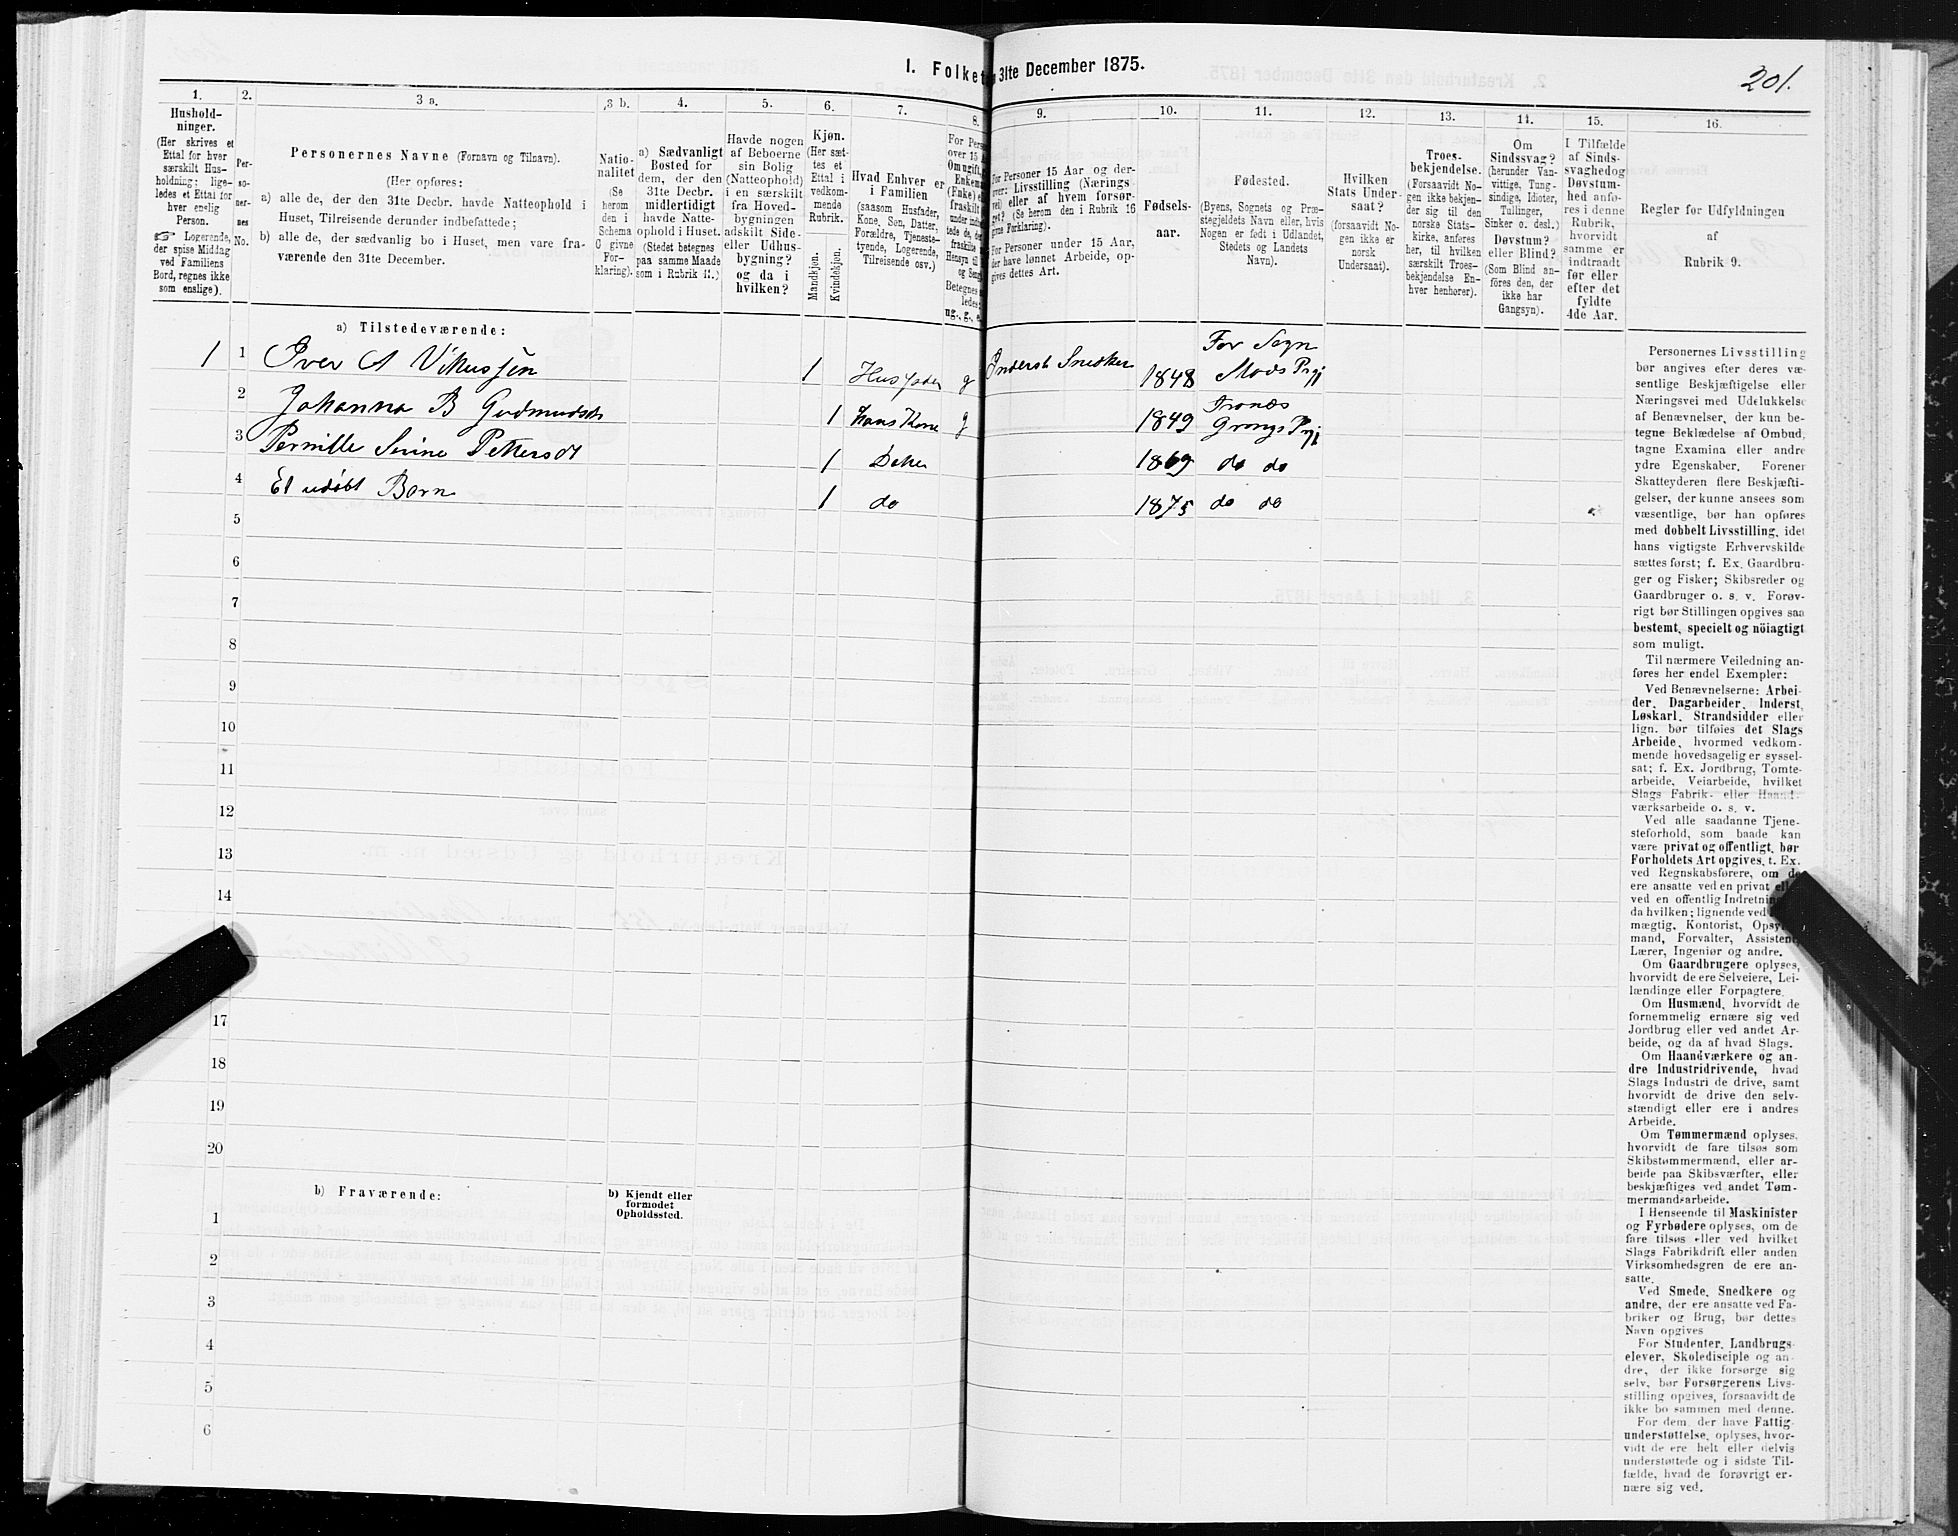 1. Folket
n 31te December 1875.
201.
1.
2.
3 a.
3 b.
4.
5.
6.
7.
8.
9.
10.
11.
12.
13.
14.
15.
16.
Hushold-
ninger.
(Her skrives et
Ettal for hver
særskilt Hus-
holdning; lige-
ledes et Ettal for
hver enslig
Person.
☞ Logerende,
der spise Middag
ved Familiens
Bord, regnes ikke
som enslige).
Per-
so-
ner-
nes
No.
Personernes Navne (Fornavn og Tilnavn).
(Her opføres:
a) alle de, der den 31te Decbr. havde Natteophold i
Huset, Tilreisende derunder indbefattede;
b) alle de, der sædvanlig bo i Huset, men vare fra-
værende den 31te December.
Natio-
nalitet
(Se
herom
den i
Schema
C givne
For-
klaring).
a) Sædvanligt
Bosted for
dem, der den
31te Decbr.
midlertidigt
havde Natte-
ophold i Huset.
(Stedet betegnes
paa samme Maade
som i Rubrik 11.)
Havde nogen
af Beboerne
sin Bolig
(Natteophold)
i en særskilt
fra Hoved-
bygningen
adskilt Side-
eller Udhus-
bygning?
og da i
hvilken?
Kjøn.
(Her sæt-
tes et
Ettal i
vedkom-
mende
Rubrik.
Mandkjøn.
Kvindekjøn.
Hvad Enhver er
i Familien
(saasom Husfader,
Kone, Søn, Datter,
Forældre, Tjeneste-
tyende, Logerende,
Tilreisende osv.)
For Pers
over 15 A
Om ugift,
Enkema
(Enke) e
fraskilt
ug., g., e.
For Personer 15 Aar og der-
over: Livsstilling (Nærings
vei) eller af hvem forsør-
get? (Se herom den i Rubrik 16
givne Forklaring).
For Personer under 15 Aar,
der have lønnet Arbeide, op-
gives dettes Art.
Fødsels-
aar.
Fødested.
(Byens, Sognets og Præ-
stegjeldets Navn eller, hvis
Nogen er født i Udlandet,
Stedets og Landets
Navn).
Hvilken
Stats Under-
saat?
(forsaavidt No-
gen ikke er
norsk
Undersaat).
Troes-
bekjendelse.
(Forsaavidt No-
gen ikke bekjen-
der sig til den
norske Stats-
kirke, anføres
her, til hvilken
særskilt Troes-
bekjendelse En-
hver henhører).
Om
Sindssvag?
(herunder Van-
vittige, Tung-
sindige, Idioter,
Tullinger,
Sinker o. desl.)
Døvstum?
eller Blind?
(Som Blind an-
føres den, der
ikke har
Gangsyn).
I Tilfælde
af Sinds-
svaghed og
Døvstum-
hed anfø-
res i denne
Rubrik,
hvorvidt
samme er
indtraadt
før eller
efter det
fyldte
4de Aar.
Regler for Udfyldningen
af
Rubrik 9.
a) Tilstedeværende:
1 1 Iver A Vikussen 1 Husfader g Inderst Snedker 1848 For Sogn
Mods Prgj
2 Johanna B Gudmundsdt 1 hans Kone g 1849 Tronæs
Grongs Prgj
3 Pernille Serine Pettersdt 1 Datter 1869 do do
4 Et udøbt Barn 1 do 1875 do do
5
6
7
8
9
10
11
12
13
14
17
18
19
20
b) Fraværende:
b) Kjendt eller
formodet
Opholdssted.
1
2
3
4
5
6
Personernes Livsstilling
bør angives efter deres væ-
sentlige Beskjæftigelse eller
Næringsvei med Udelukkelse
af Benævnelser, der kun be-
tegne Beklædelse af Ombud,
tagne Examina eller andre
ydre Egenskaber. Forener
Skatteyderen flere Beskjæfti-
gelser, der kunne ansees som
væsentlige, bør han opføres
med dobbelt Livsstilling, idet
hans vigtigste Erhvervskilde
sættes først; f. Ex. Gaardbru-
ger og Fisker; Skibsreder og
Gaardbruger o. s. v. Forøv-
rigt bør Stillingen opgives saa
bestemt, specielt og nöiagtigt
som muligt.
Til nærmere Veiledning an-
føres her endel Exempler:
Ved Benævnelserne: Arbei-
der, Dagarbeider, Inderst,
Løskarl, Strandsidder eller
lign. bør tilføies det Slags
Arbeide, hvormed vedkom-
mende hovedsagelig er syssel-
sat; f. Ex. Jordbrug, Tomte-
arbeide, Veiarbeide, hvilket
Slags Fabrik- eller Haand-
værksarbeide o. s. v.
Ved alle saadanne Tjene-
steforhold, som baade kan
være privat og offentligt, bør
Forholdets Art opgives, t. Ex.
ved Regnskabsførere, om de
ere ansatte ved en privat el
ved en offentlig Indretnin
da hvilken; lignende ved
mægtig, Kontorist, Opsy
mand, Forvalter, Assistent,
Lærer, Ingeniør og andre.
Om Gaardbrugere oplyses,
hvorvidt de ere Selveiere, Lei-
lændinge eller Forpagtere.
Om Husmænd, hvorvidt de
fornemmelig ernære sig ved
Jordbrug eller ved andet Ar-
beide, og da af hvad Slags.
Om Haandværkere og an-
dre Industridrivende, hvad
Slags Industri de drive, samt
hvorvidt de drive den selv-
stændigt eller ere i andres
Arbeide.
Om Tømmermænd oplyses,
hvorvidt de fare tilsøs som
Skibstømmermænd, eller ar-
beide paa Skibsværfter, eller
beskjæftiges ved andet Tøm-
mermandsarbeide.
I Henseende til Maskinister
og Fyrbødere oplyses, om de
fare tilsøs eller ved hvilket
Slags Fabrikdrift eller anden
Virksomhedsgren de ere an-
satte.
Ved Smede, Snedkere og
andre, der ere ansatte ved Fa-
briker og Brug, bør dettes
Navn opgives
For Studenter, Landbrugs-
elever, Skoledisciple og an-
dre, der ikke forsørge sig
selv, bør Forsørgerens Livs-
stilling opgives, forsaavidt de
ikke bo sammen med denne.
For dem, der have Fattig-
understøttelse, oplyses, hvor-
vidt de ere helt eller delvis
understøttede og i sidste Til-
fælde, hvad de forøvrigt er-
nære sig ved.